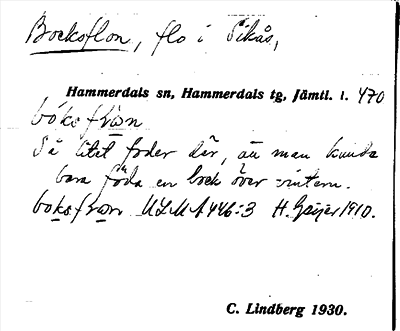 Bocksflon, flo i Sikås,
Hammerdals sn, Hammerdals tg, Jämtl. l. 470
bóksfrån
Så litet foder där, att man kunde
bara föda en bock över vintern.
boksfrån ULMA 446:3 H. Geijer 1910.
C. Lindberg 1930.